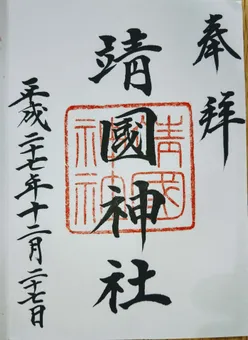 奉拝
靖國神社
平成二十七年十二月二十七日
靖國
神社